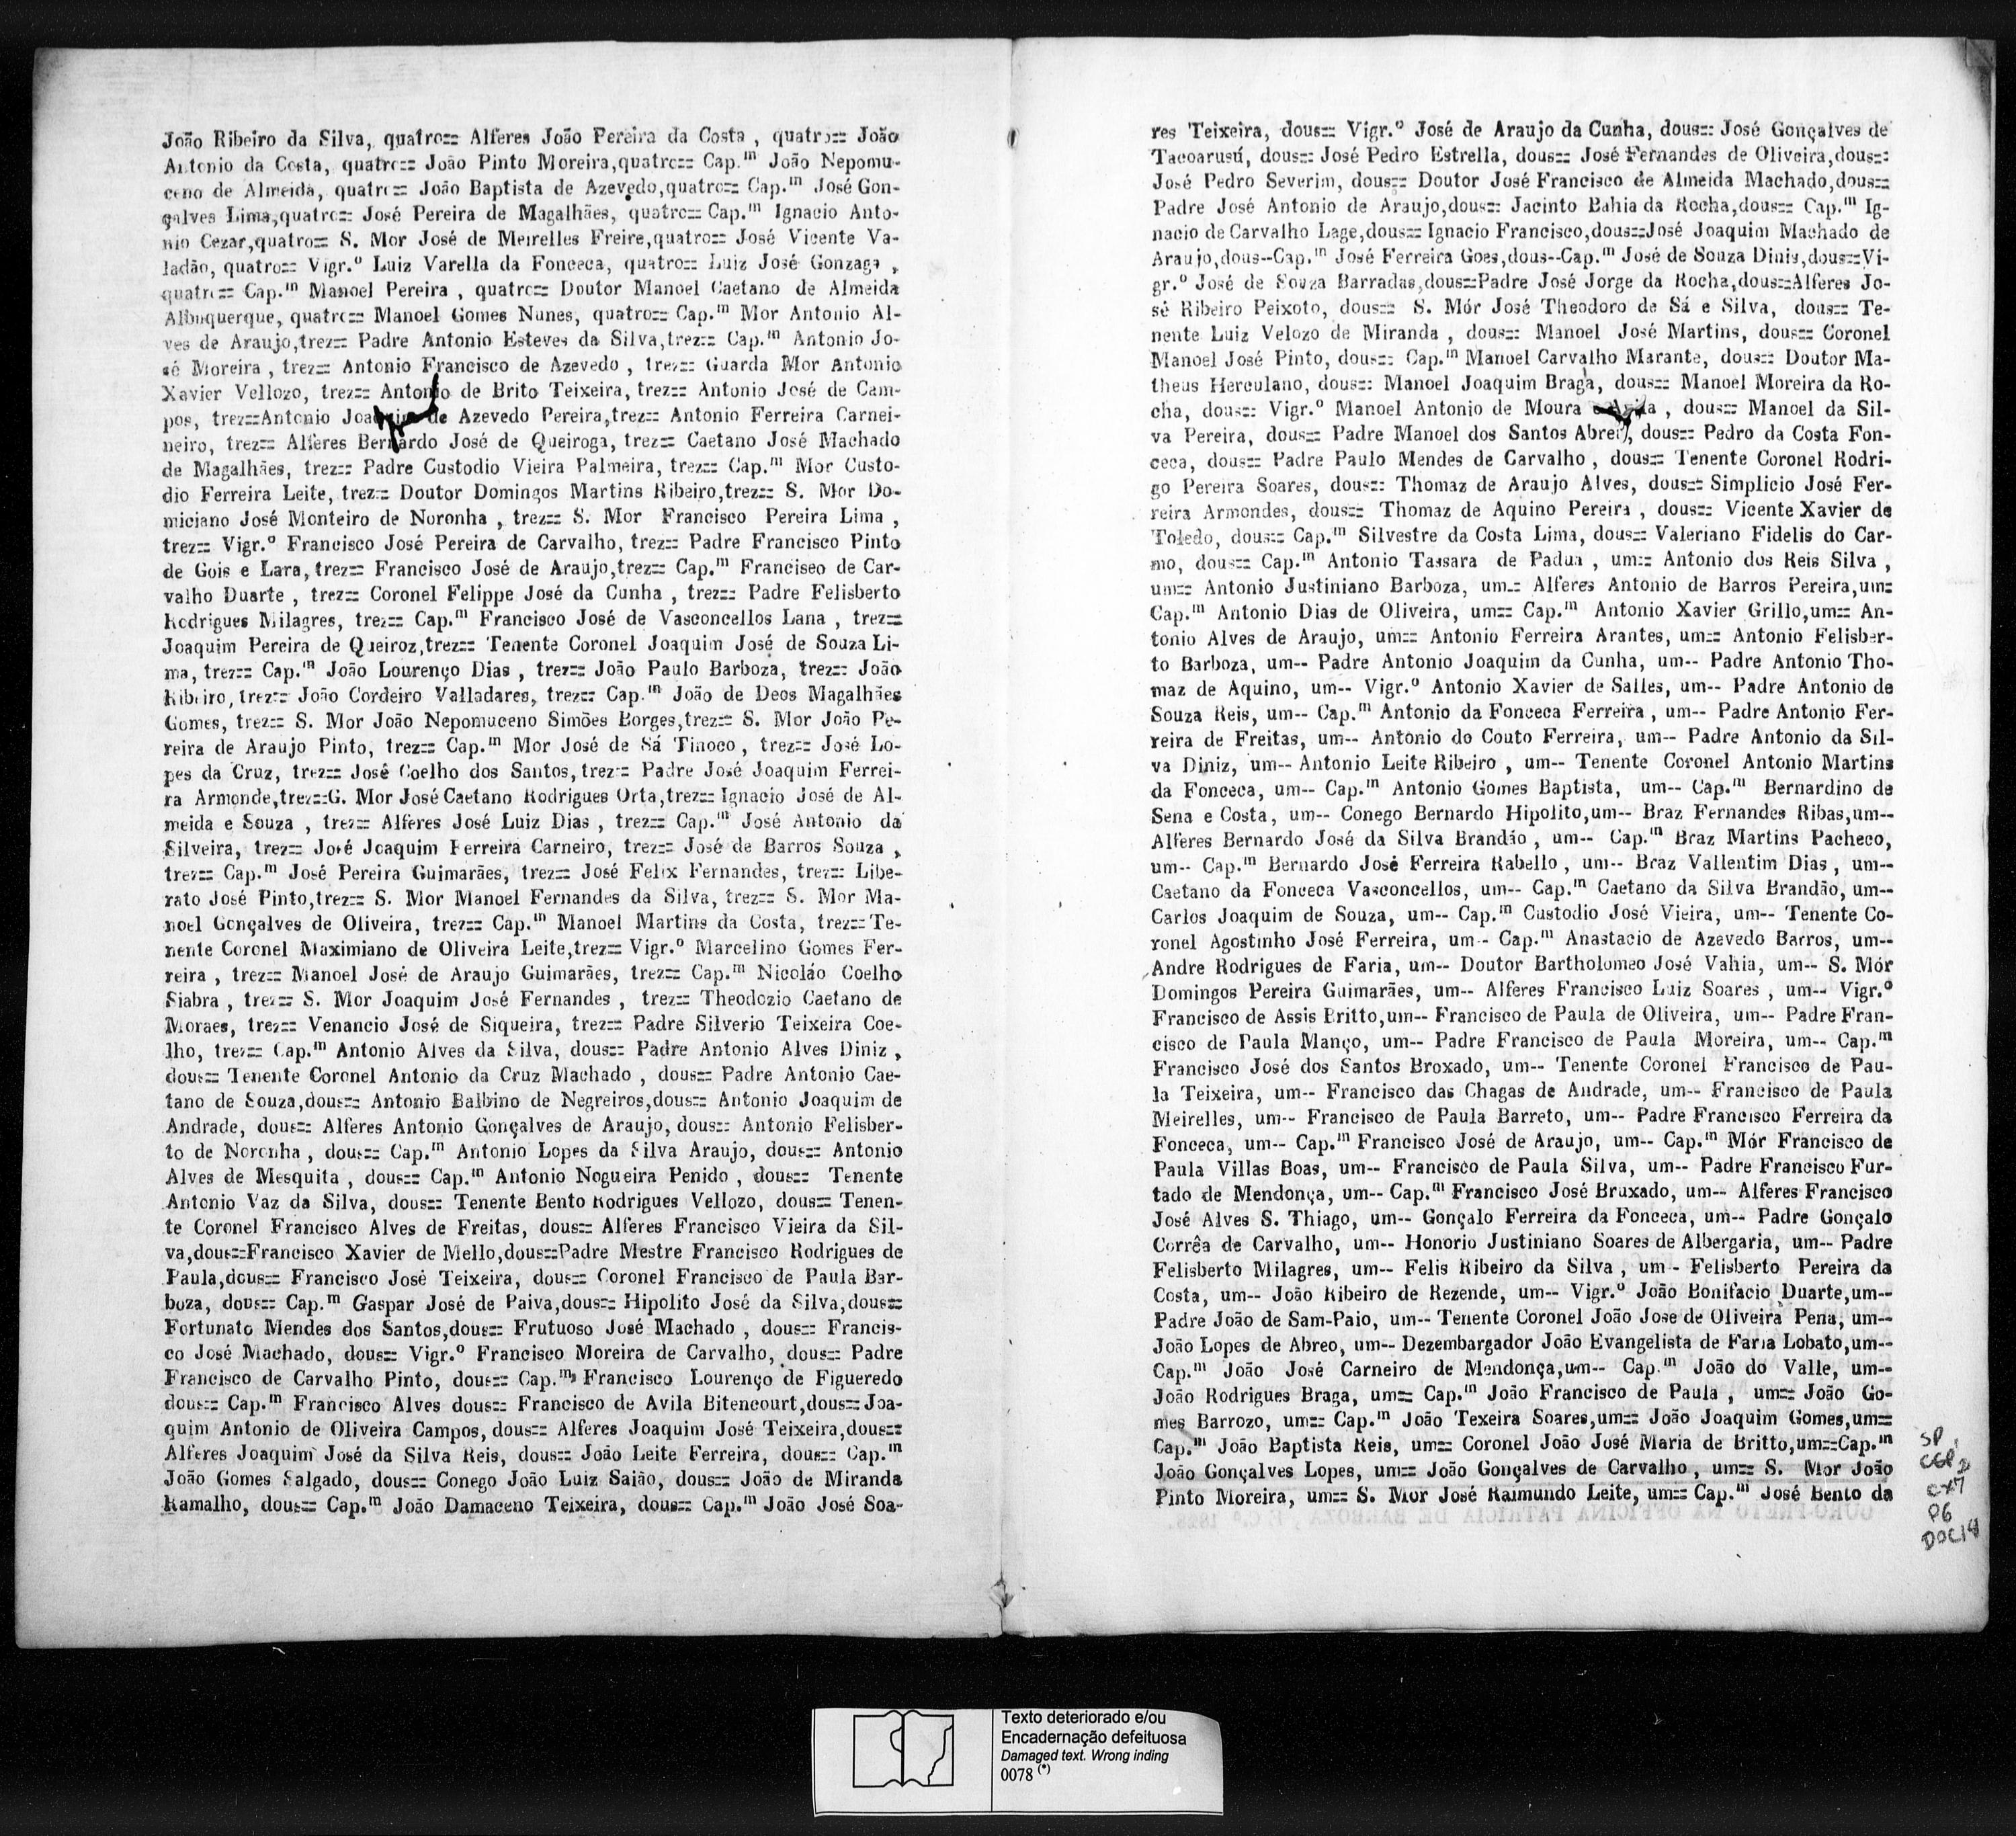 João Ribeiro da Silva, quatro== Alferes João Pereira da Costa , quatro== João
Antonio da Costa, quatro== João Pinto Moreira,quatro== Cap.m João Nepomu-
ceno de Almeida, quatro== João Baptista de Azevedo,quatro== Cap.m José Gon-
çalves Lima,quatro== José Pereira de Magalhães, quatro== Cap.m Ignacio Anto-
nio Cezar,quatro== S. Mor José de Meirelles Freire,quatro== José Vicente Va-
ladão, quatro== Vigr.o Luiz Varella da Fonceca, quatro== Luiz José Gonzaga ,
quatro== Cap.m Manoel Pereira , quatro== Doutor Manoel Caetano de Almeida
Albuquerque, quatro== Manoel Gomes Nunes, quatro== Cap.m Mor Antonio Al-
ves de Araujo,trez== Padre Antonio Esteves da Silva,trez== Cap.m Antonio Jo-
sé Moreira , trez== Antonio Francisco de Azevedo , trez== Guarda Mor Antonio
Xavier Vellozo, trez== Antonio de Brito Teixeira, trez== Antonio José de Cam-
pos, trez==Antonio Joaquim de Azevedo Pereira,trez== Antonio Ferreira Carnei-
neiro, trez== Alferes Bernardo José de Queiroga, trez== Caetano José Machado
de Magalhães, trez== Padre Custodio Vieira Palmeira, trez== Cap.m Mor Custo-
dio Ferreira Leite, trez== Doutor Domingos Martins Ribeiro,trez== S. Mor Do-
miciano José Monteiro de Noronha , trez== S. Mor Francisco Pereira Lima ,
trez== Vigr.o Francisco José Pereira de Carvalho, trez== Padre Francisco Pinto
de Gois e Lara, trez== Francisco José de Araujo,trez== Cap.m Franciseo de Car-
valho Duarte , trez== Coronel Felippe José da Cunha , trez== Padre Felisberto
Rodrigues Milagres, trez== Cap.m Francisco José de Vasconcellos Lana , trez==
Joaquim Pereira de Queiroz,trez== Tenente Coronel Joaquim José de Souza Li-
ma, trez== Cap.m João Lourenço Dias , trez== João Paulo Barboza, trez== João
Ribeiro, trez== João Cordeiro Valladares, trez== Cap.m João de Deos Magalhães
Gomes, trez== S. Mor João Nepomuceno Simões Borges,trez== S. Mor João Pe-
reira de Araujo Pinto, trez== Cap.m Mor José de Sá Tinoco , trez== José Lo-
pes da Cruz, trez== José Coelho dos Santos, trez== Padre José Joaquim Ferrei-
ra Armonde,trez==G. Mor José Caetano Rodrigues Orta,trez== Ignacio José de Al-
meida e Souza , trez== Alferes José Luiz Dias , trez== Cap.m José Antonio da
Silveira, trez== José Joaquim Ferreira Carneiro, trez== José de Barros Souza ,
trez== Cap.m José Pereira Guimarães, trez== José Felix Fernandes, trez== Libe-
rato José Pinto,trez== S. Mor Manoel Fernandes da Silva, trez== S. Mor Ma-
noel Gonçalves de Oliveira, trez== Cap.m Manoel Martins da Costa, trez== Te-
nente Coronel Maximiano de Oliveira Leite,trez== Vigr.o Marcelino Gomes Fer-
reira , trez== Manoel José de Araujo Guimarães, trez== Cap.m Nicoláo Coelho
Siabra , trez== S. Mor Joaquim José Fernandes , trez== Theodozio Caetano de
Moraes, trez== Venancio José de Siqueira, trez== Padre Silverio Teixeira Coe-
lho, trez== Cap.m Antonio Alves da Silva, dous== Padre Antonio Alves Diniz ,
dous== Tenente Coronel Antonio da Cruz Machado , dous== Padre Antonio Cae-
tano de Souza,dous== Antonio Balbino de Negreiros,dous== Antonio Joaquim de
Andrade, dous== Alferes Antonio Gonçalves de Araujo, dous== Antonio Felisber-
to de Noronha , dous== Cap.m Antonio Lopes da Silva Araujo, dous== Antonio
Alves de Mesquita , dous== Cap.m Antonio Nogueira Penido , dous== Tenente
Antonio Vaz da Silva, dous== Tenente Bento Rodrigues Vellozo, dous== Tenen-
te Coronel Francisco Alves de Freitas, dous== Alferes Francisco Vieira da Sil-
va,dous==Francisco Xavier de Mello,dous==Padre Mestre Francisco Rodrigues de
Paula,dous== Francisco José Teixeira, dous== Coronel Francisco de Paula Bar-
boza, dous== Cap.m Gaspar José de Paiva,dous== Hipolito José da Silva,dous==
Fortunato Mendes dos Santos,dous== Frutuoso José Machado , dous== Francis-
co José Machado, dous== Vigr.o Francisco Moreira de Carvalho, dous== Padre
Francisco de Carvalho Pinto, dous== Cap.m Francisco Lourenço de Figueredo
dous== Cap.m Francisco Alves dous== Francisco de Avila Bitencourt,dous== Joa-
quim Antonio de Oliveira Campos, dous== Alferes Joaquim José Teixeira,dous==
Alferes Joaquim José da Silva Reis, dous== João Leite Ferreira, dous== Cap.m
João Gomes Salgado, dous== Conego João Luiz Saião, dous== João de Miranda
Ramalho, dous== Cap.m João Damaceno Teixeira, dous== Cap.m João José Soa-
res Teixeira, dous== Vigr.o José de Araujo da Cunha, dous== José Gonçalves de
Tacoarusú, dous== José Pedro Estrella, dous== José Fernandes de Oliveira,dous==
José Pedro Severim, dous== Doutor José Francisco de Almeida Machado,dous==
Padre José Antonio de Araujo,dous== Jacinto Bahia da Rocha,dous== Cap.m Ig-
nacio de Carvalho Lage,dous== Ignacio Francisco,dous==José Joaquim Machado de
Araujo,dous--Cap.m José Ferreira Goes,dous--Cap.m José de Souza Dinis,dous==Vi-
gr.o José de Souza Barradas,dous==Padre José Jorge da Rocha,dous==Alferes Jo-
sé Ribeiro Peixoto, dous== S. Mór José Theodoro de Sá e Silva, dous== Te-
nente Luiz Velozo de Miranda , dous== Manoel José Martins, dous== Coronel
Manoel José Pinto, dous== Cap.m Manoel Carvalho Marante, dous== Doutor Ma-
theus Herculano, dous== Manoel Joaquim Braga, dous== Manoel Moreira da Ro-
cha, dous== Vigr.o Manoel Antonio de Moura , dous== Manoel da Sil-
va Pereira, dous== Padre Manoel dos Santos Abreu, dous== Pedro da Costa Fon-
ceca, dous== Padre Paulo Mendes de Carvalho , dous== Tenente Coronel Rodri-
go Pereira Soares, dous== Thomaz de Araujo Alves, dous== Simplicio José Fer-
reira Armondes, dous== Thomaz de Aquino Pereira , dous== Vicente Xavier de
Toledo, dous== Cap.m Silvestre da Costa Lima, dous== Valeriano Fidelis do Car-
mo, dous== Cap.m Antonio Tassara de Padua , um== Antonio dos Reis Silva ,
um== Antonio Justiniano Barboza, um== Alferes Antonio de Barros Pereira,um=
Cap.m Antonio Dias de Oliveira, um== Cap.m Antonio Xavier Grillo,um== An-
tonio Alves de Araujo, um== Antonio Ferreira Arantes, um== Antonio Felisber-
to Barboza, um-- Padre Antonio Joaquim da Cunha, um-- Padre Antonio Tho-
maz de Aquino, um-- Vigr.o Antonio Xavier de Salles, um-- Padre Antonio de
Souza Reis, um-- Cap.m Antonio da Fonceca Ferreira , um-- Padre Antonio Fer-
reira de Freitas, um-- Antonio do Couto Ferreira, um-- Padre Antonio da Sil-
va Diniz, um-- Antonio Leite Ribeiro , um-- Tenente Coronel Antonio Martins
da Fonceca, um-- Cap.m Antonio Gomes Baptista, um-- Cap.m Bernardino de
Sena e Costa, um-- Conego Bernardo Hipolito,um-- Braz Fernandes Ribas,um--
Alferes Bernardo José da Silva Brandão , um-- Cap.m Braz Martins Pacheco,
um-- Cap.m Bernardo José Ferreira Rabello , um-- Braz Vallentim Dias , um--
Caetano da Fonceca Vasconcellos, um-- Cap.m Caetano da Silva Brandão, um--
Carlos Joaquim de Souza, um-- Cap.m Custodio José Vieira, um-- Tenente Co-
ronel Agostinho José Ferreira, um-- Cap.m Anastacio de Azevedo Barros, um--
Andre Rodrigues de Faria, um-- Doutor Bartholomeo José Vahia, um-- S. Mór
Domingos Pereira Guimarães, um-- Alferes Francisco Luiz Soares , um-- Vigr.o
Francisco de Assis Britto,um-- Francisco de Paula de Oliveira, um-- Padre Fran-
cisco de Paula Manço, um-- Padre Francisco de Paula Moreira, um-- Cap.m
Francisco José dos Santos Broxado, um-- Tenente Coronel Francisco de Pau-
la Teixeira, um-- Francisco das Chagas de Andrade, um-- Francisco de Paula
Meirelles, um-- Francisco de Paula Barreto, um-- Padre Francisco Ferreira da
Fonceca, um-- Cap.m Francisco José de Araujo, um-- Cap.m Mór Francisco de
Paula Villas Boas, um-- Francisco de Paula Silva, um-- Padre Francisco Fur-
tado de Mendonça, um-- Cap.m Francisco José Bruxado, um-- Alferes Francisco
José Alves S. Thiago, um-- Gonçalo Ferreira da Fonceca, um-- Padre Gonçalo
Corrêa de Carvalho, um-- Honorio Justiniano Soares de Albergaria, um-- Padre
Felisberto Milagres, um-- Felis Ribeiro da Silva , um - Felisberto Pereira da
Costa, um-- João Ribeiro de Rezende, um-- Vigr.o João Bonifacio Duarte,um--
Padre João de Sam-Paio, um-- Tenente Coronel João Jose de Oliveira Pena, um--
João Lopes de Abreo, um-- Dezembargador João Evangelista de Faria Lobato,um--
Cap.m João José Carneiro de Mendonça,um-- Cap.m João do Valle, um--
João Rodrigues Braga, um== Cap.m João Francisco de Paula , um== João Go-
mes Barrozo, um== Cap.m João Texeira Soares,um== João Joaquim Gomes,um==
Cap.m João Baptista Reis, um== Coronel João José Maria de Britto,um==Cap.m
João Gonçalves Lopes, um== João Gonçalves de Carvalho , um== S. Mor João
Pinto Moreira, um== S. Mor José Raimundo Leite, um== Cap.m José Bento da
SP
CGP2
CX7
P6
DOC18
Texto deteriorado e/ou
Encadernação defeituosa
Damaged text. Wrong inding
0078 (*)